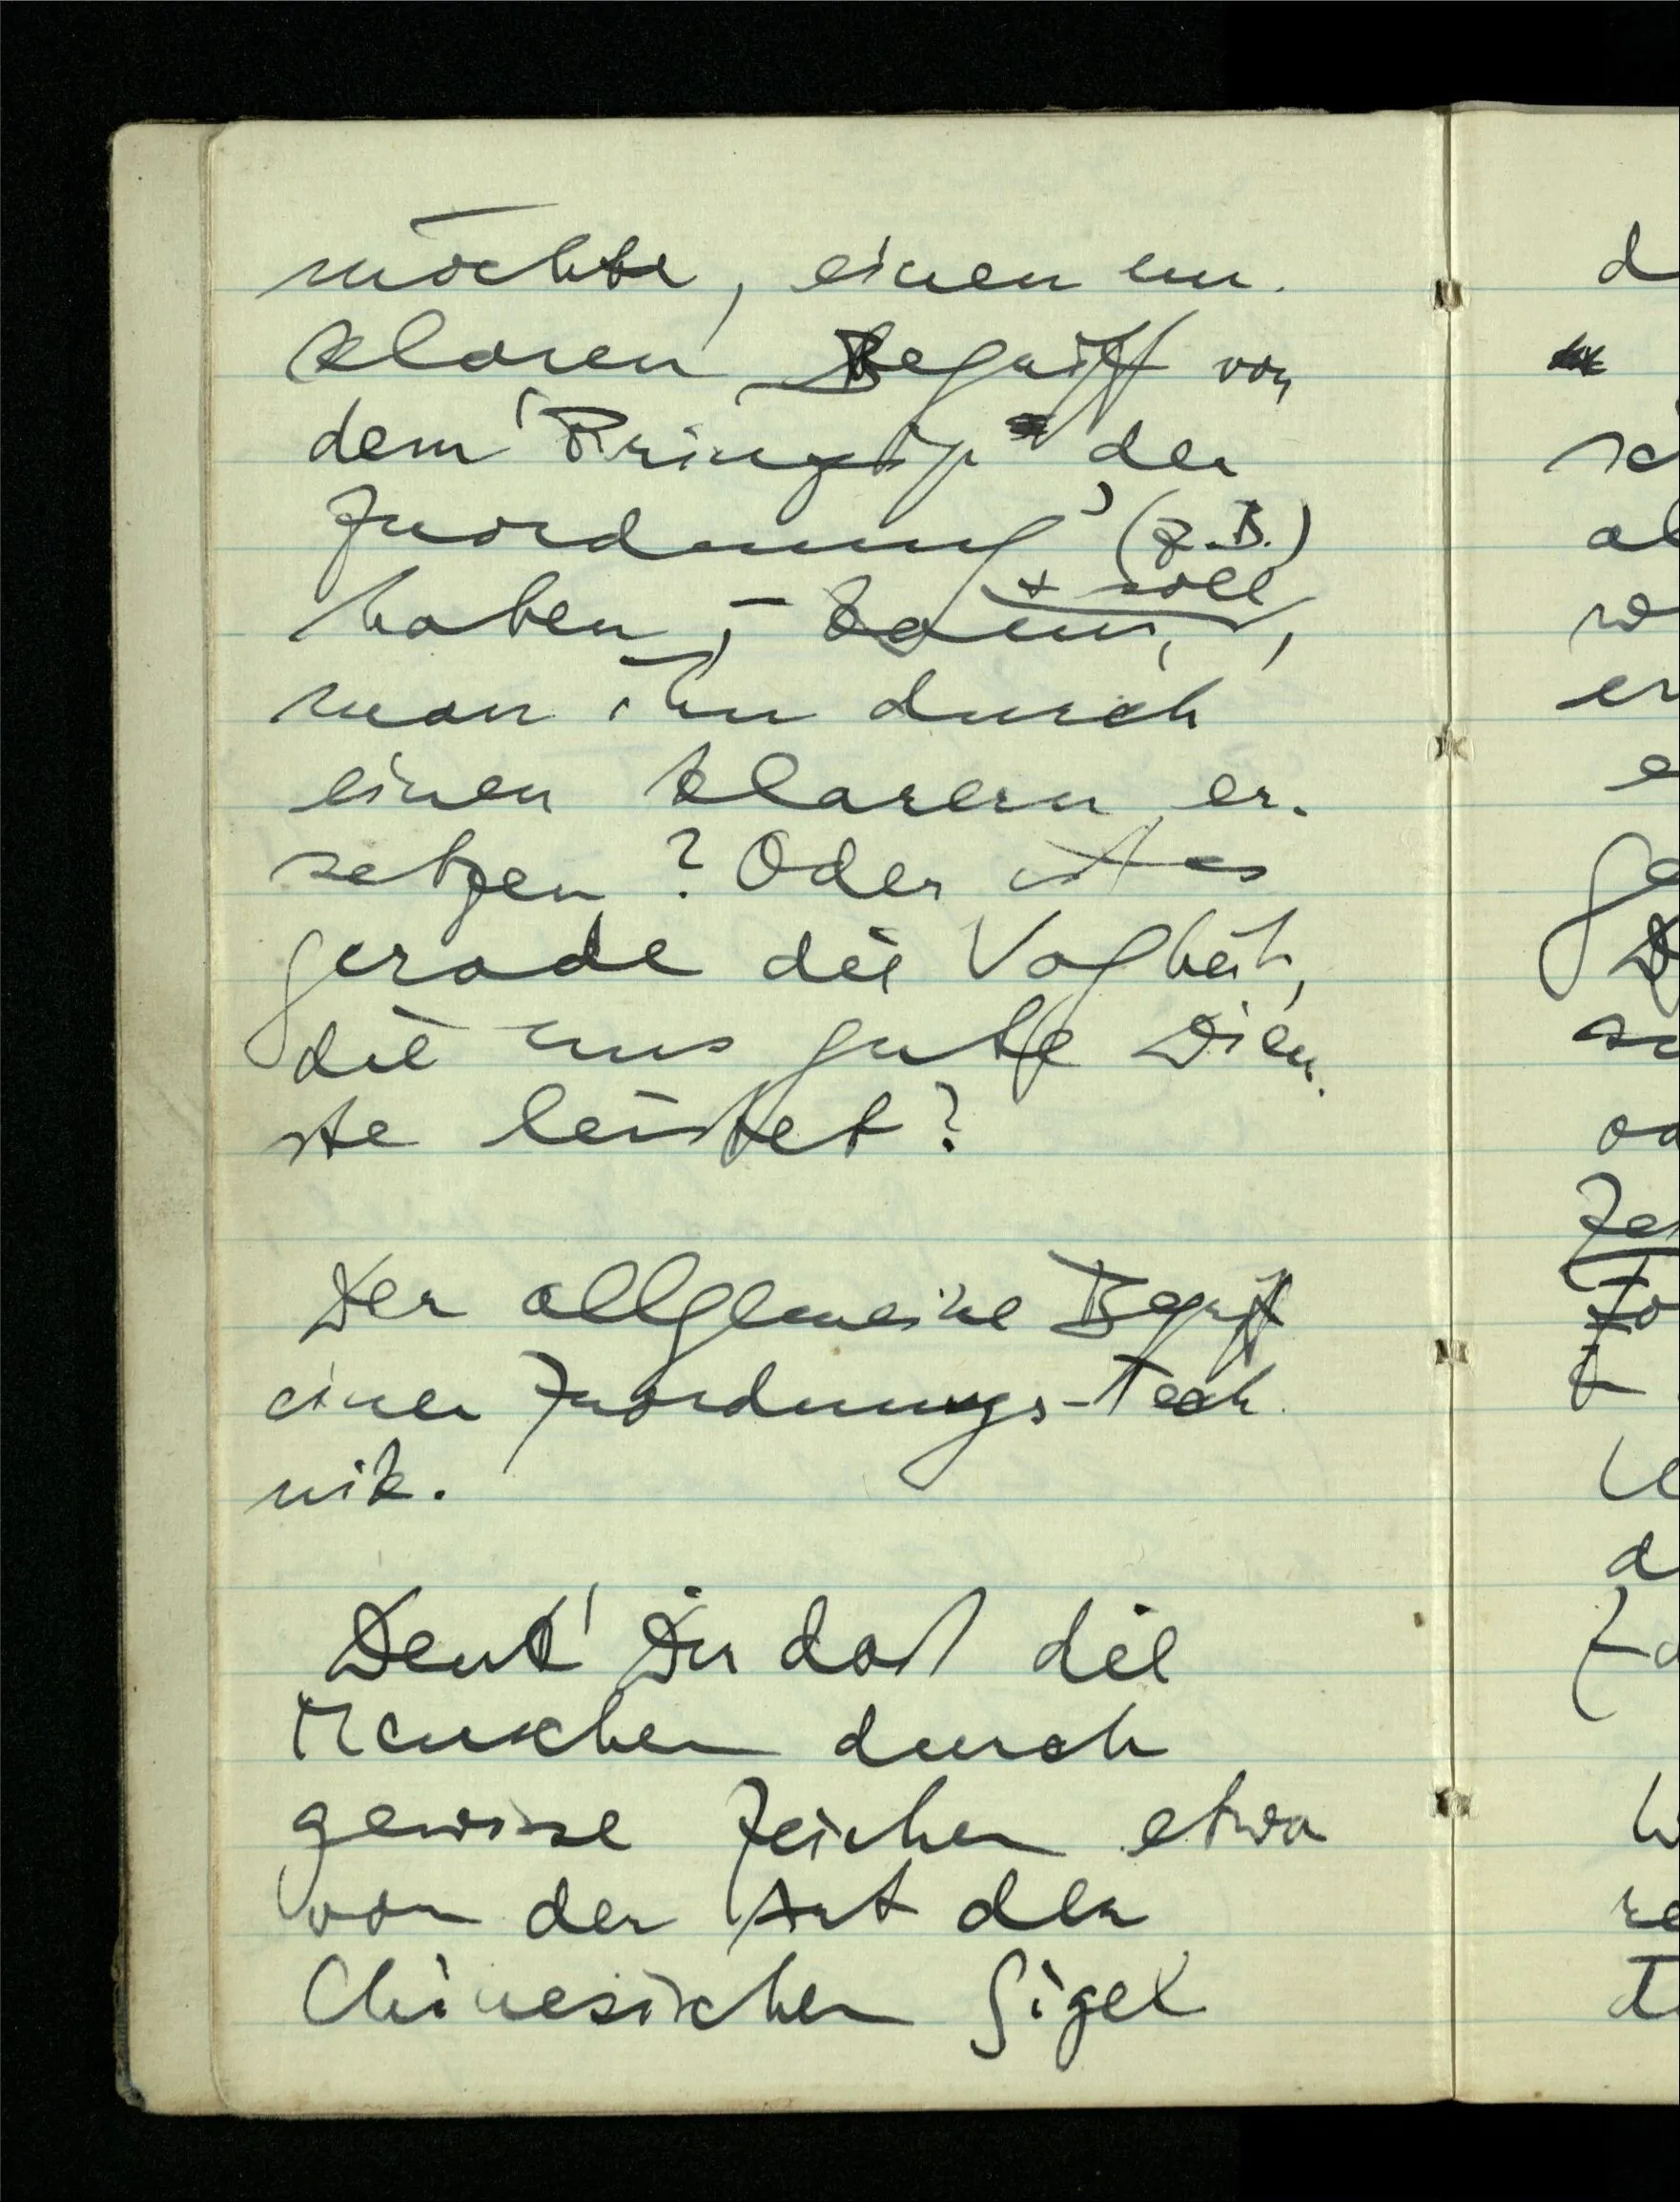 möchte, einen un-
klaren Begriff von
dem 'Prinzip der
Zuordnung' (z.B.)
haben, – kann, + soll,
man ihn durch
einen klarern er-
setzen? Oder ist es
gerade die Vagheit,
die uns gute Dien-
ste leistet?
Der allgemeine Begriff
einer Zuordnungs-Tech
nik.
Denk' Dir daß die
Menschen durch
gewisse Zeichen etwa
von der Art der
Chinesischen Sigel